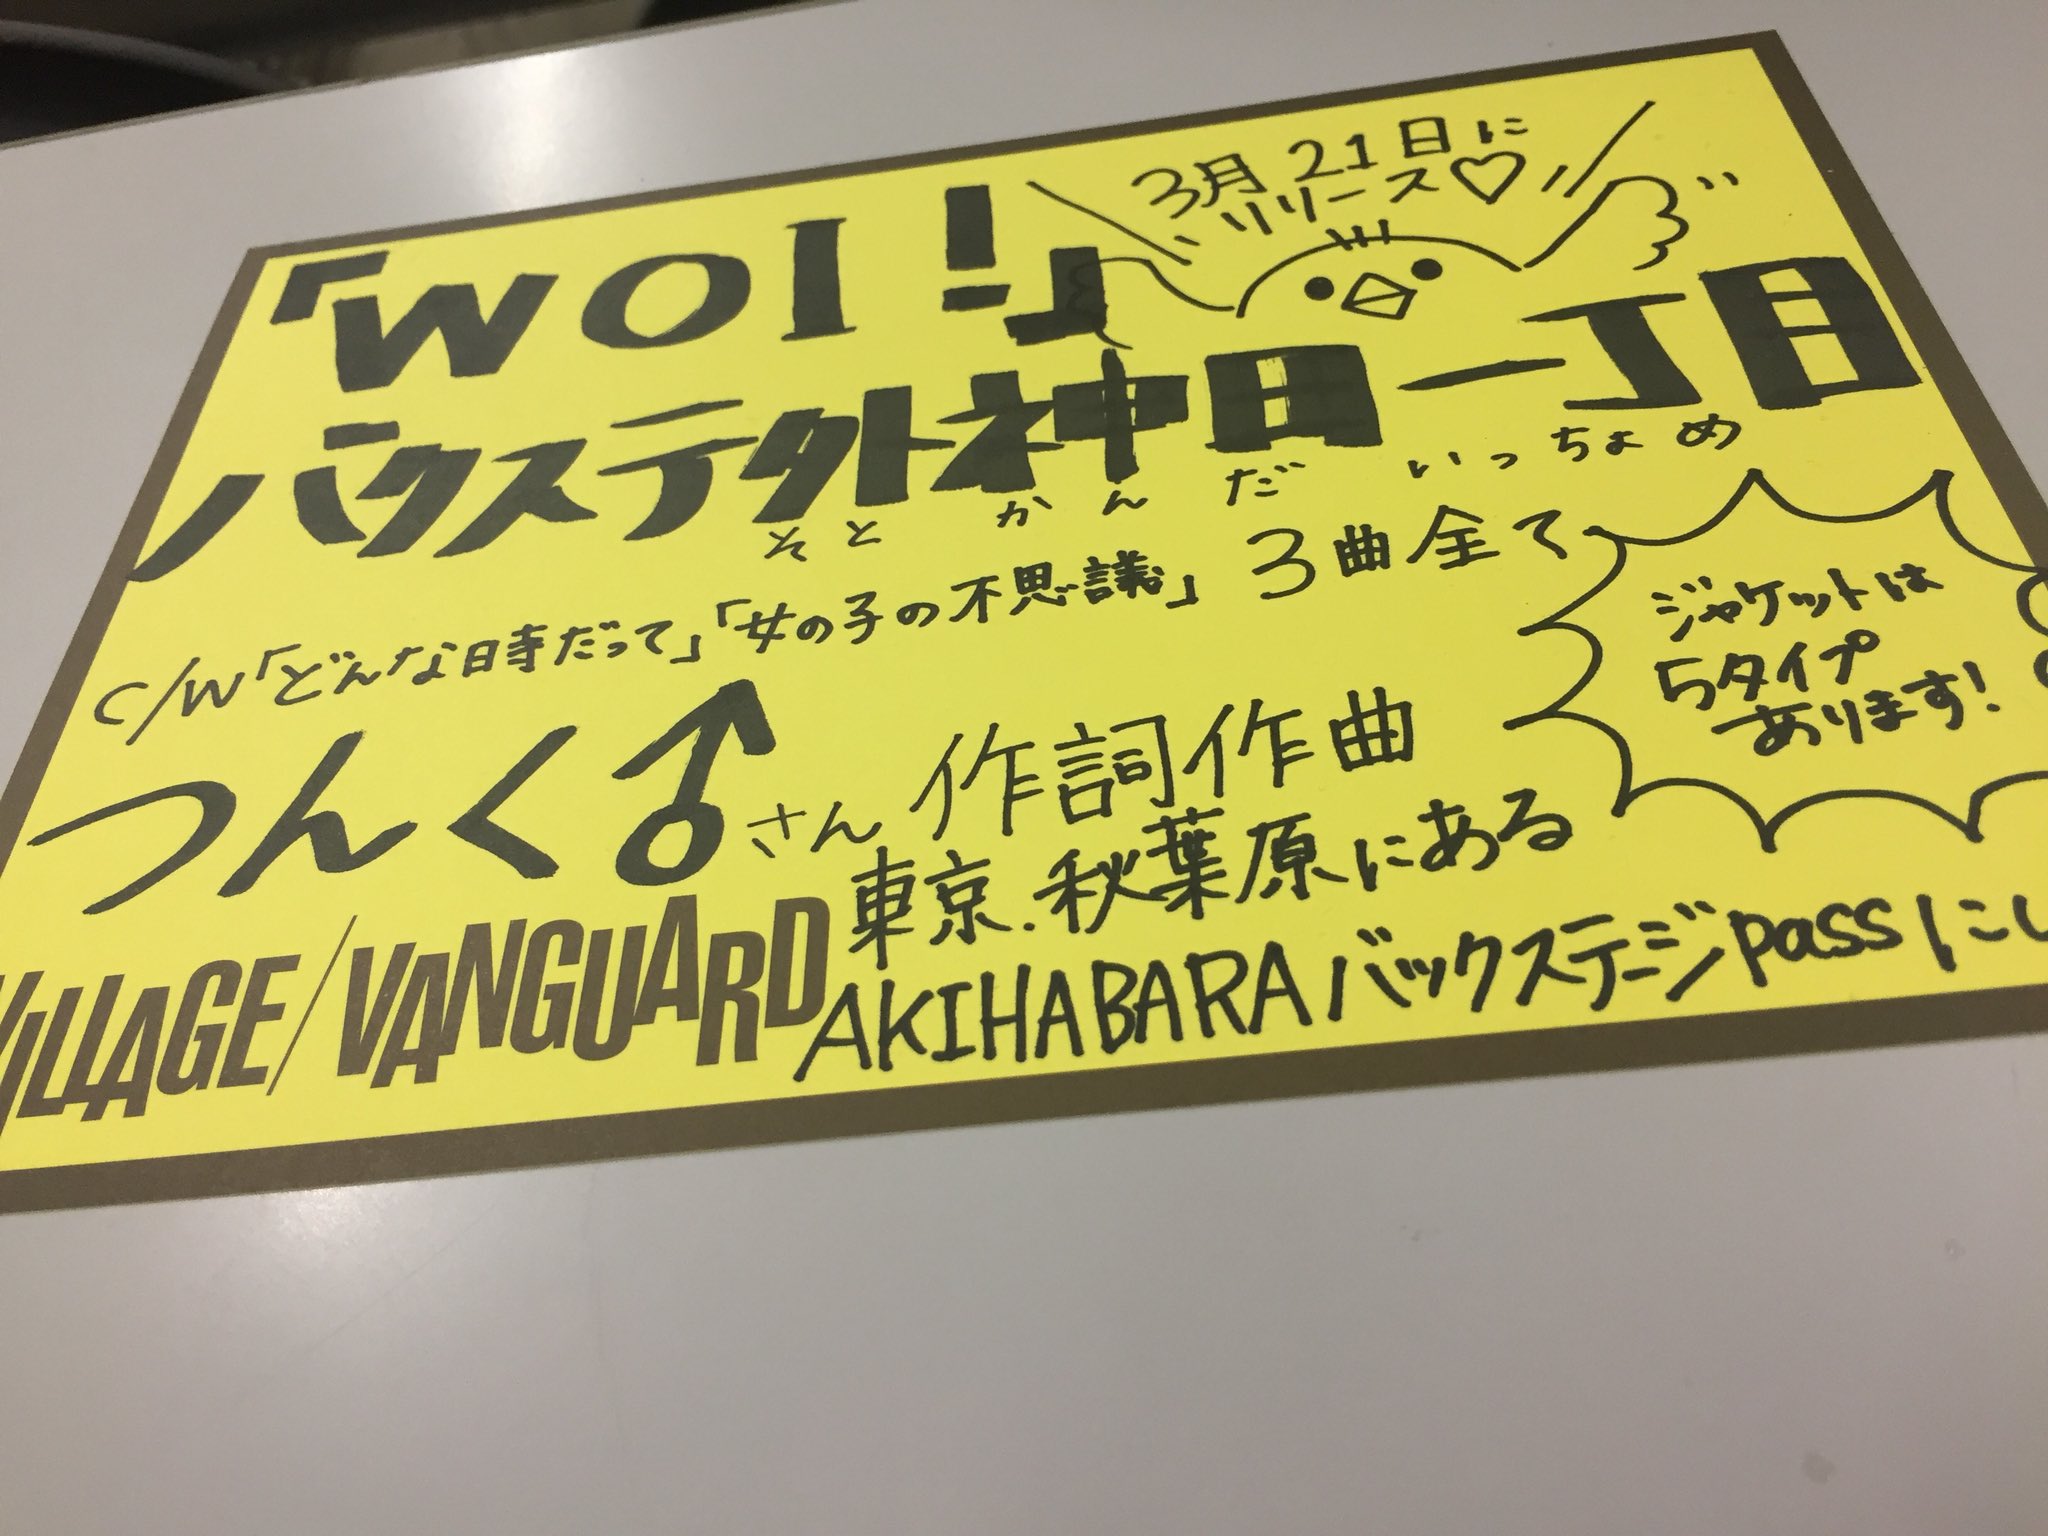 3月21日に
リリース♡
「WOI!」
バクステ外神田一丁目
そとかんだいっちょめ
C/W「どんな時だって」「女の子の不思議」3曲全て
つんく♂さん作詞作曲
ジャケットは
5タイプ
あります!
東京.秋葉原にある
AKIHABARAバックステージpassにい
VILLAGE/VANGUARD